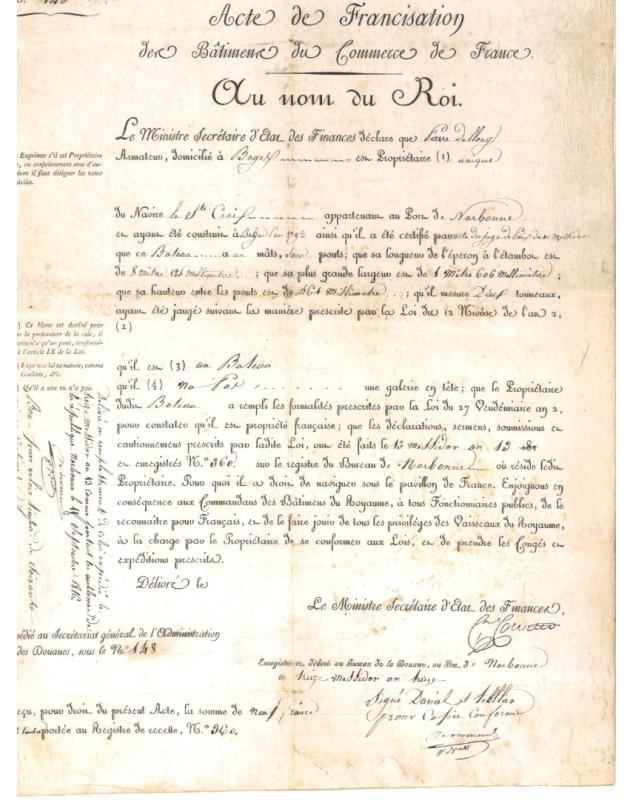 Acte de Francisation
des Bâtimens du Commerce de France.
Au nom du Roi.
Le Ministre Secrétaire d'Etat des Finances déclare que Pierre
Armateur, domicilié à Bages est Propriétaire (1) unique
Exprimer s'il est Propriétaire
ou conjointement avec d'au-
dont il faut désigner les noms
domiciles.
du Navire le Ste Croix appartenant au Port de Narbonne
et ayant été construit à Bages l'an 1792 ainsi qu'il a été certifié par
que ce Bateau a un mâts, sans ponts; que sa longueur de l'éperon à l'étambot est
de 8 mètre 125 millimètres; que sa plus grande largeur est de 1 mètre 606 millimètre;
que sa hauteur entre les ponts est de 461 millimètre; qu'il mesure Deux tonneaux,
ayant été jaugé suivant la manière prescrite par la Loi du 12 Nivôse de l'an 2,
(2)
) Ce blanc est destiné pour
la profondeur de la cale, il
n'a qu'un pont, conformé-
à l'article IX de la Loi.
) Exprimer ici sa nature, comme
Goelette, &c.
) Qu'il a une ou n'a pas.
qu'il est (3) un Bateau
qu'il (4) na Pas une galerie en tête; que le Propriétaire
dudit Bateau a rempli les formalités prescrites par la Loi du 27 Vendémiaire an 2,
pour constater qu'il est propriété française; que les déclarations, sermens, soumissions et
cautionnemens prescrits par ladite Loi, ont été faits le 13 messidor an 13
et enregistrés N.º 360. sur le registre du Bureau de Narbonne où réside ledit
Propriétaire. Pour quoi il a droit de naviguer sous le pavillon de France. Enjoignons en
conséquence aux Commandans des Bâtimens du Royaume, à tous Fonctionnaires publics, de le
reconnaître pour Français, et de le faire jouir de tous les privilèges des Vaisseaux du Royaume,
à la charge par le Propriétaire de se conformer aux Lois, et de prendre les Congés et
expéditions prescrits.
Délivré le
Délivré en remplacement de celui expédié le
treize messidor an 13
république Narbonne le Septembre 1816
Le Ministre Secrétaire d'Etat des Finances,
édié au Secrétariat général de l'Administration
des Douanes, sous le N.º 148
Enregistré et délivré au Bureau de la Douane, au Port de Narbonne
le treize messidor an treize
Signé Danial et
pour Copie Conforme
eçu, pour droit du présent Acte, la somme de neuf francs
portée au Registre de recette, N.º 360.